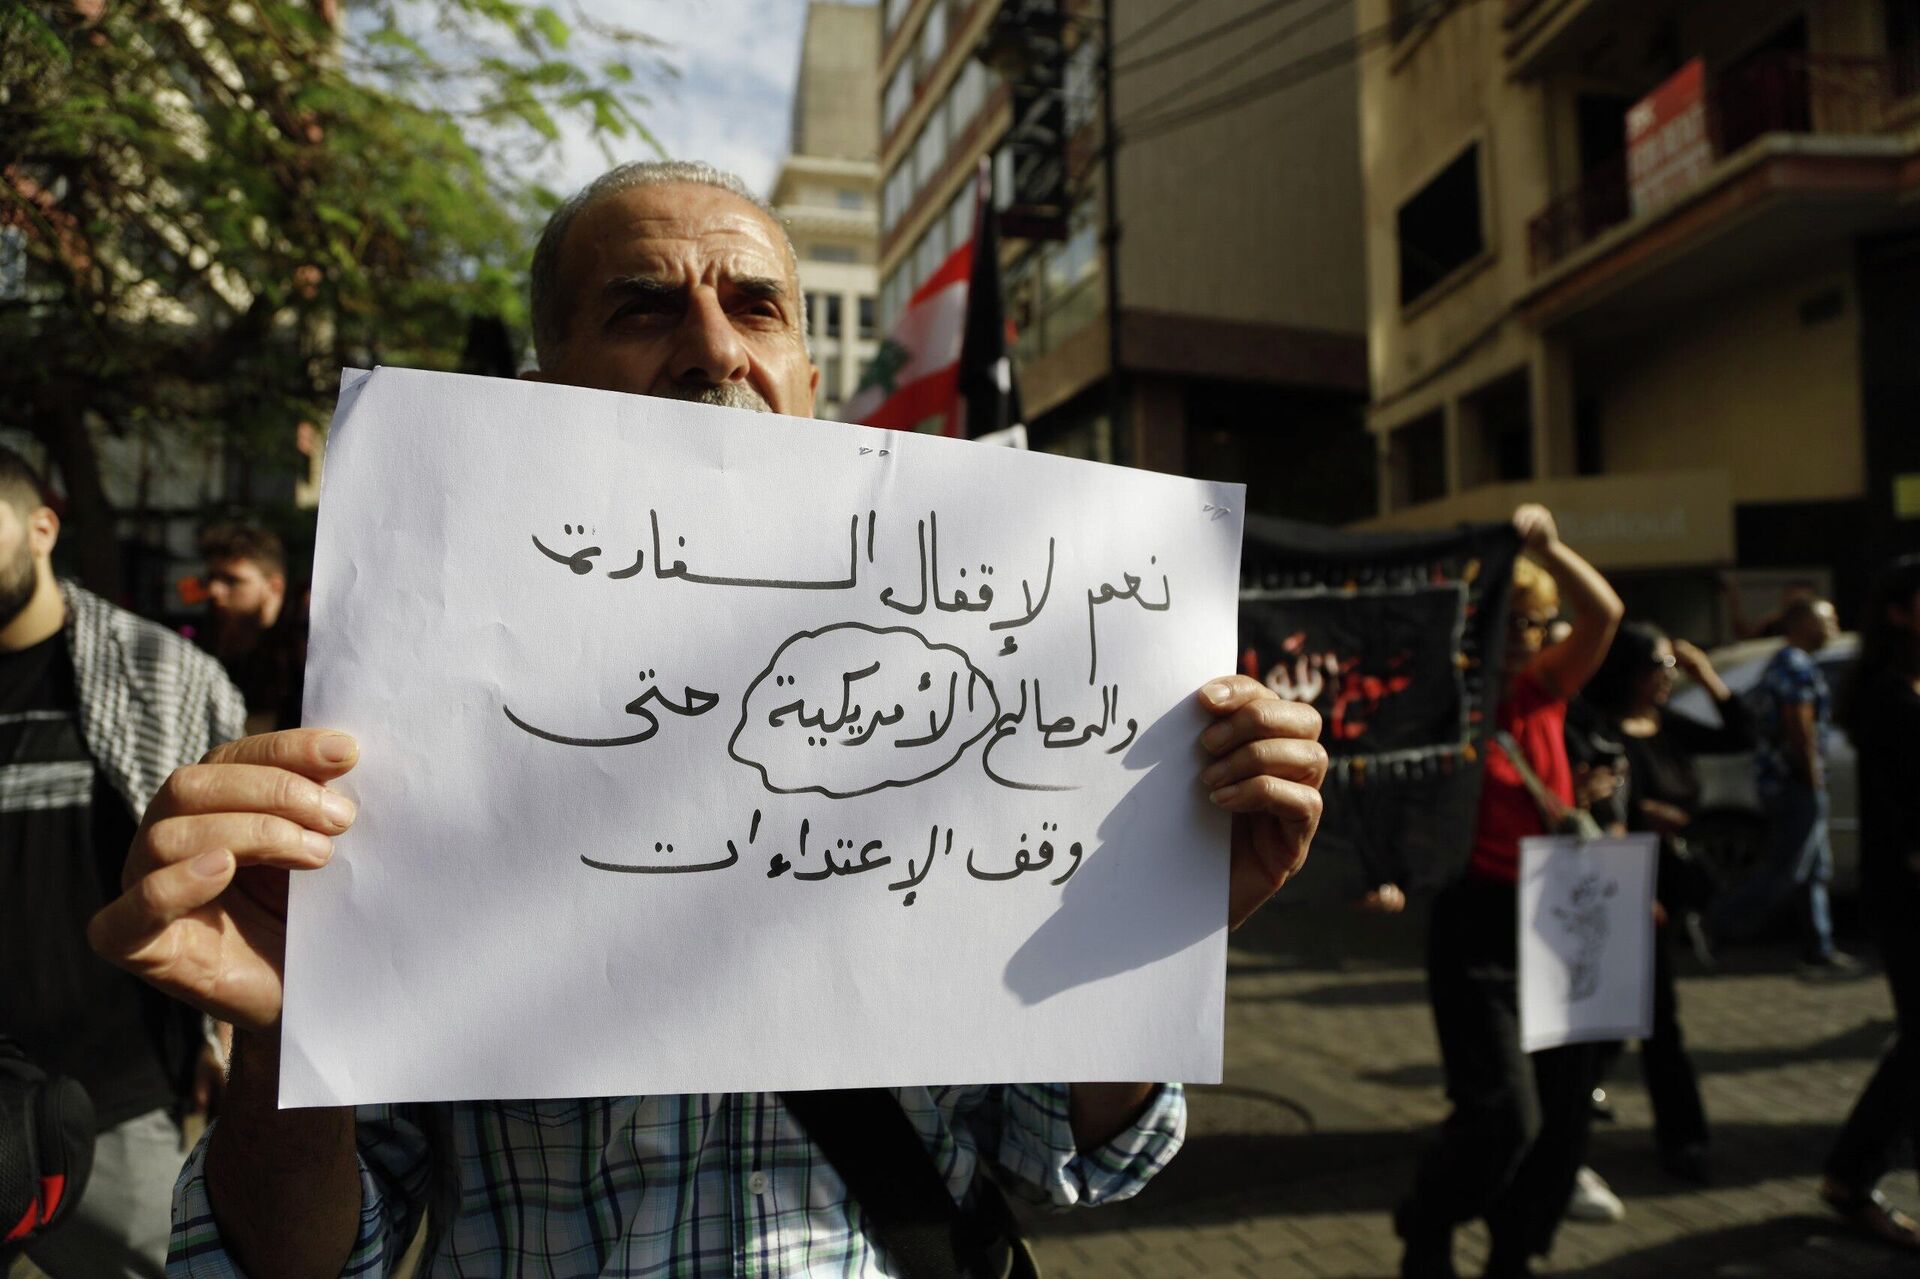 نعم لإقفال السفارت
والمصالح الأمريكية حتى
وقف الإعتداءات